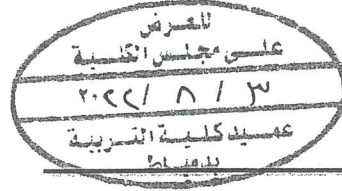 للعرض
على مجلس الكلية
٢٠٢٢/ ٨ / ٣
عميد كلية التربية
بدمياط